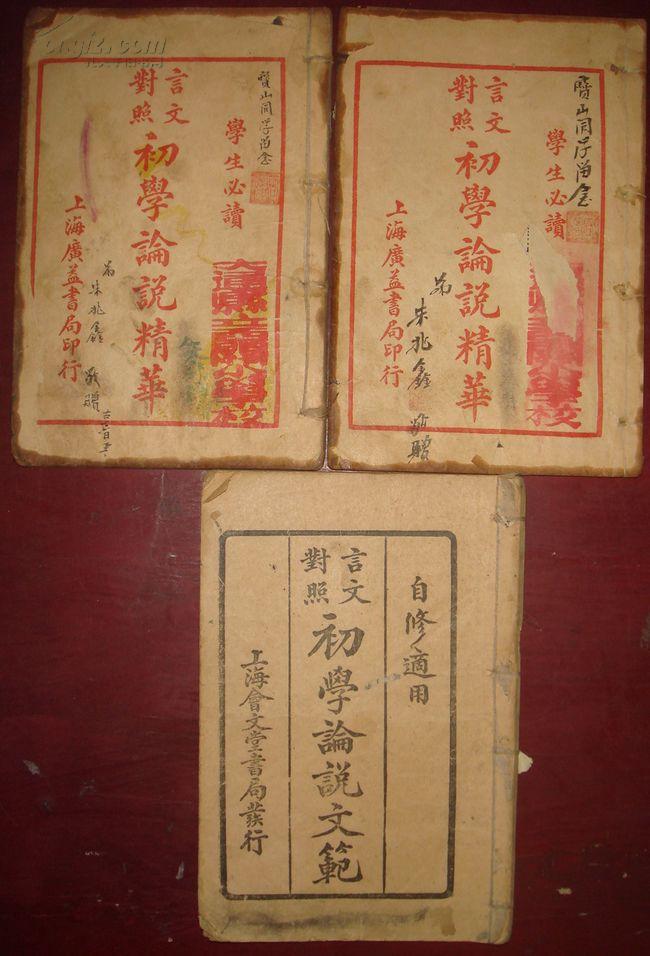 寶山同學留念
學生必讀
言文
對照
初學論說精華
上海廣益書局印行
弟朱兆鑫敬贈
寶山同學留念
學生必讀
言文
對照
初學論說精華
上海廣益書局印行
弟朱兆鑫敬贈
自修適用
言文
對照
初學論說文範
上海會文堂書局發行